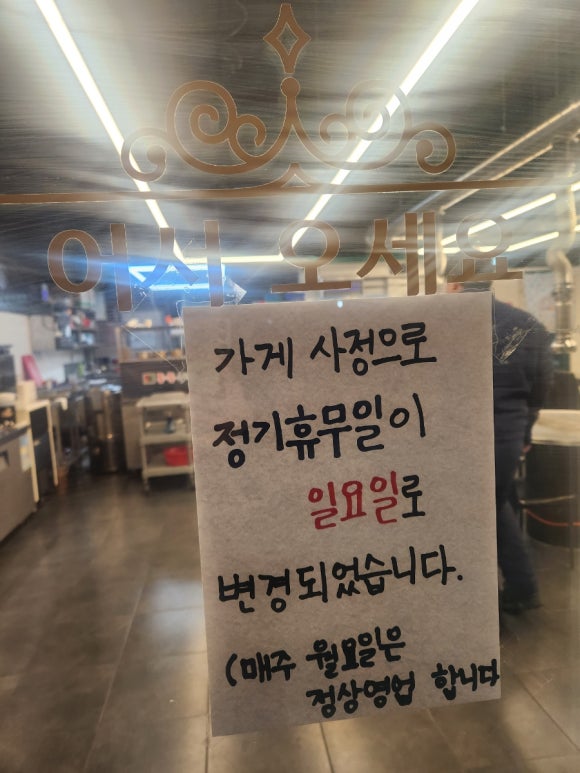 어서 오세요
가게 사정으로
정기휴무일이
일요일로
변경되었습니다.
(매주 월요일은
정상영업 합니다